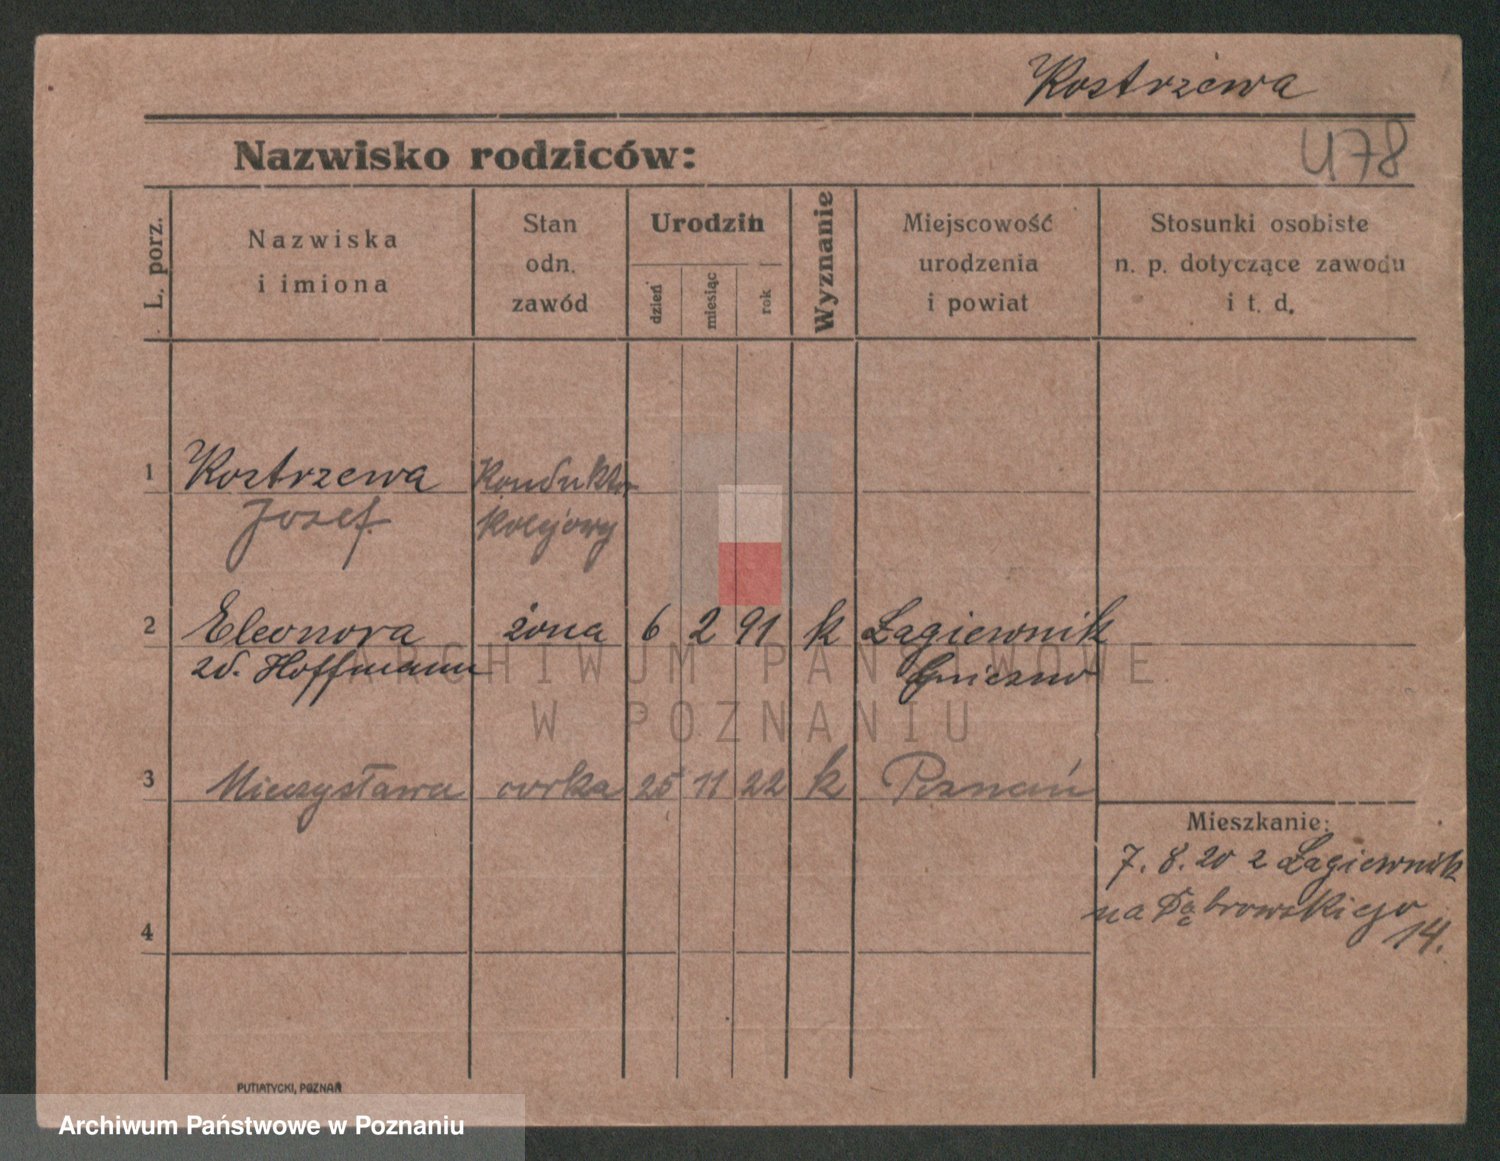 Kostrzewa
Nazwisko rodziców:
478
L. porz.
Nazwiska
i imiona
Stan
odn.
zawód
Urodzin
dzień
miesiąc
rok
Wyznanie
Miejscowość
urodzenia
i powiat
Stosunki osobiste
n. p. dotyczące zawodu
i t. d.
1 Kostrzewa Konduktor
Josef kolejowy
2 Eleonora żona 6 2 91 k Łagiewnik
zd. Hoffmann Gniezno
ARCHIWUM PAŃSTWOWE
W POZNANIU
3 Mieczysława córka 25 11 22 k Poznań
Mieszkanie:
7. 8. 20 z Łagiewnik
na Dąbrowskiego
14.
4
PUTIATYCKI, POZNAŃ
Archiwum Państwowe w Poznaniu